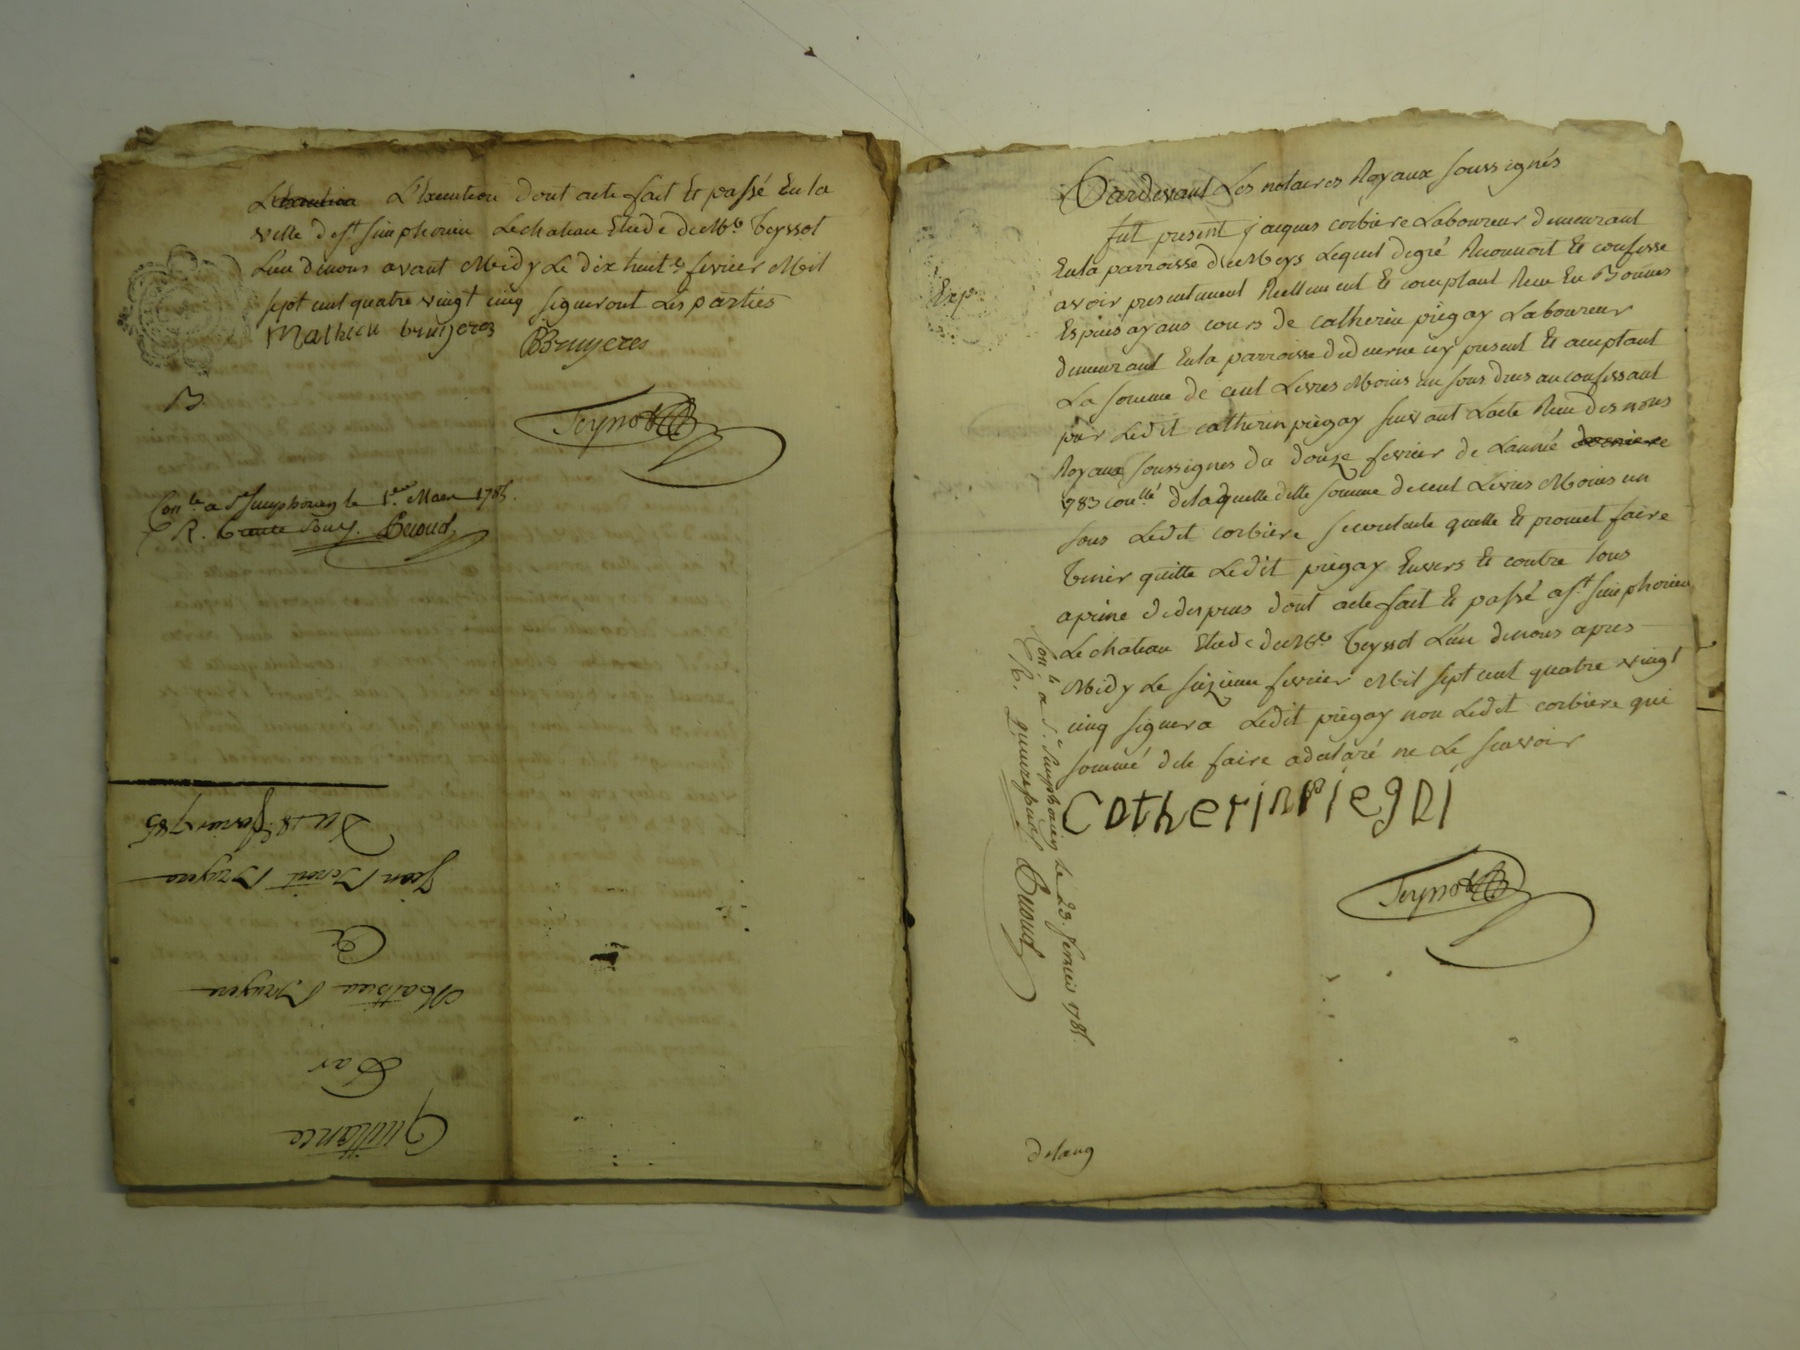 L'Exemtion L'Exemtion dont acte fait Et passé En la
ville de st simphorien Lechateau Etude de Me Teyssot
L'un de nous avant Midy Le dix huit fevrier Mil
sept cent quatre vingt cinq signeront Les parties
Mathieu bruyeres
Bruyeres
B
Teyssot
Conlé a St Simphorien le 1er Mars 1785.
R. trente sous.
Du 18. fevrier 1785
Jean Benoit Bruyere
a
Mathieu Bruyere
Par
Quittance
Pardevant Les notaires Royaux soussignés
Exp.
fut present jacques corbiere Laboureur demeurant
En la parroisse de Meys Lequel de gré Reconnoit Et confesse
avoir presentement Reellement Et comptant Receu En Bonnes
Espèces ayans cours de catherin piegay Laboureur
demeurant En la parroisse de duerne icy present Et aceptant
La somme de cent Livres Moins un sous dues au confessant
par Ledit catherin piegay suivant L'acte Receu des nous
Royaux soussignes du douze fevrier de L'année derniere
1783 conllé de laquelle ditte somme de cent Livres Moins un
sous Ledit corbiere se contente quitte Et promet faire
tenir quitte Ledit piegay Envers Et contre tous
a peine de depens dont acte fait Et passé a st simphorien
Lechateau Etude de Me Teyssot L'un de nous apres
Midy Le seizieme fevrier Mil sept cent quatre vingt
cinq signera Ledit piegay non Ledit corbiere qui
sommé de le faire a declaré ne Le scavoir
Catherin Piegai
Teyssot
Conlé a St Simphorien le 23. fevrier 1785.
R. quinze sous.